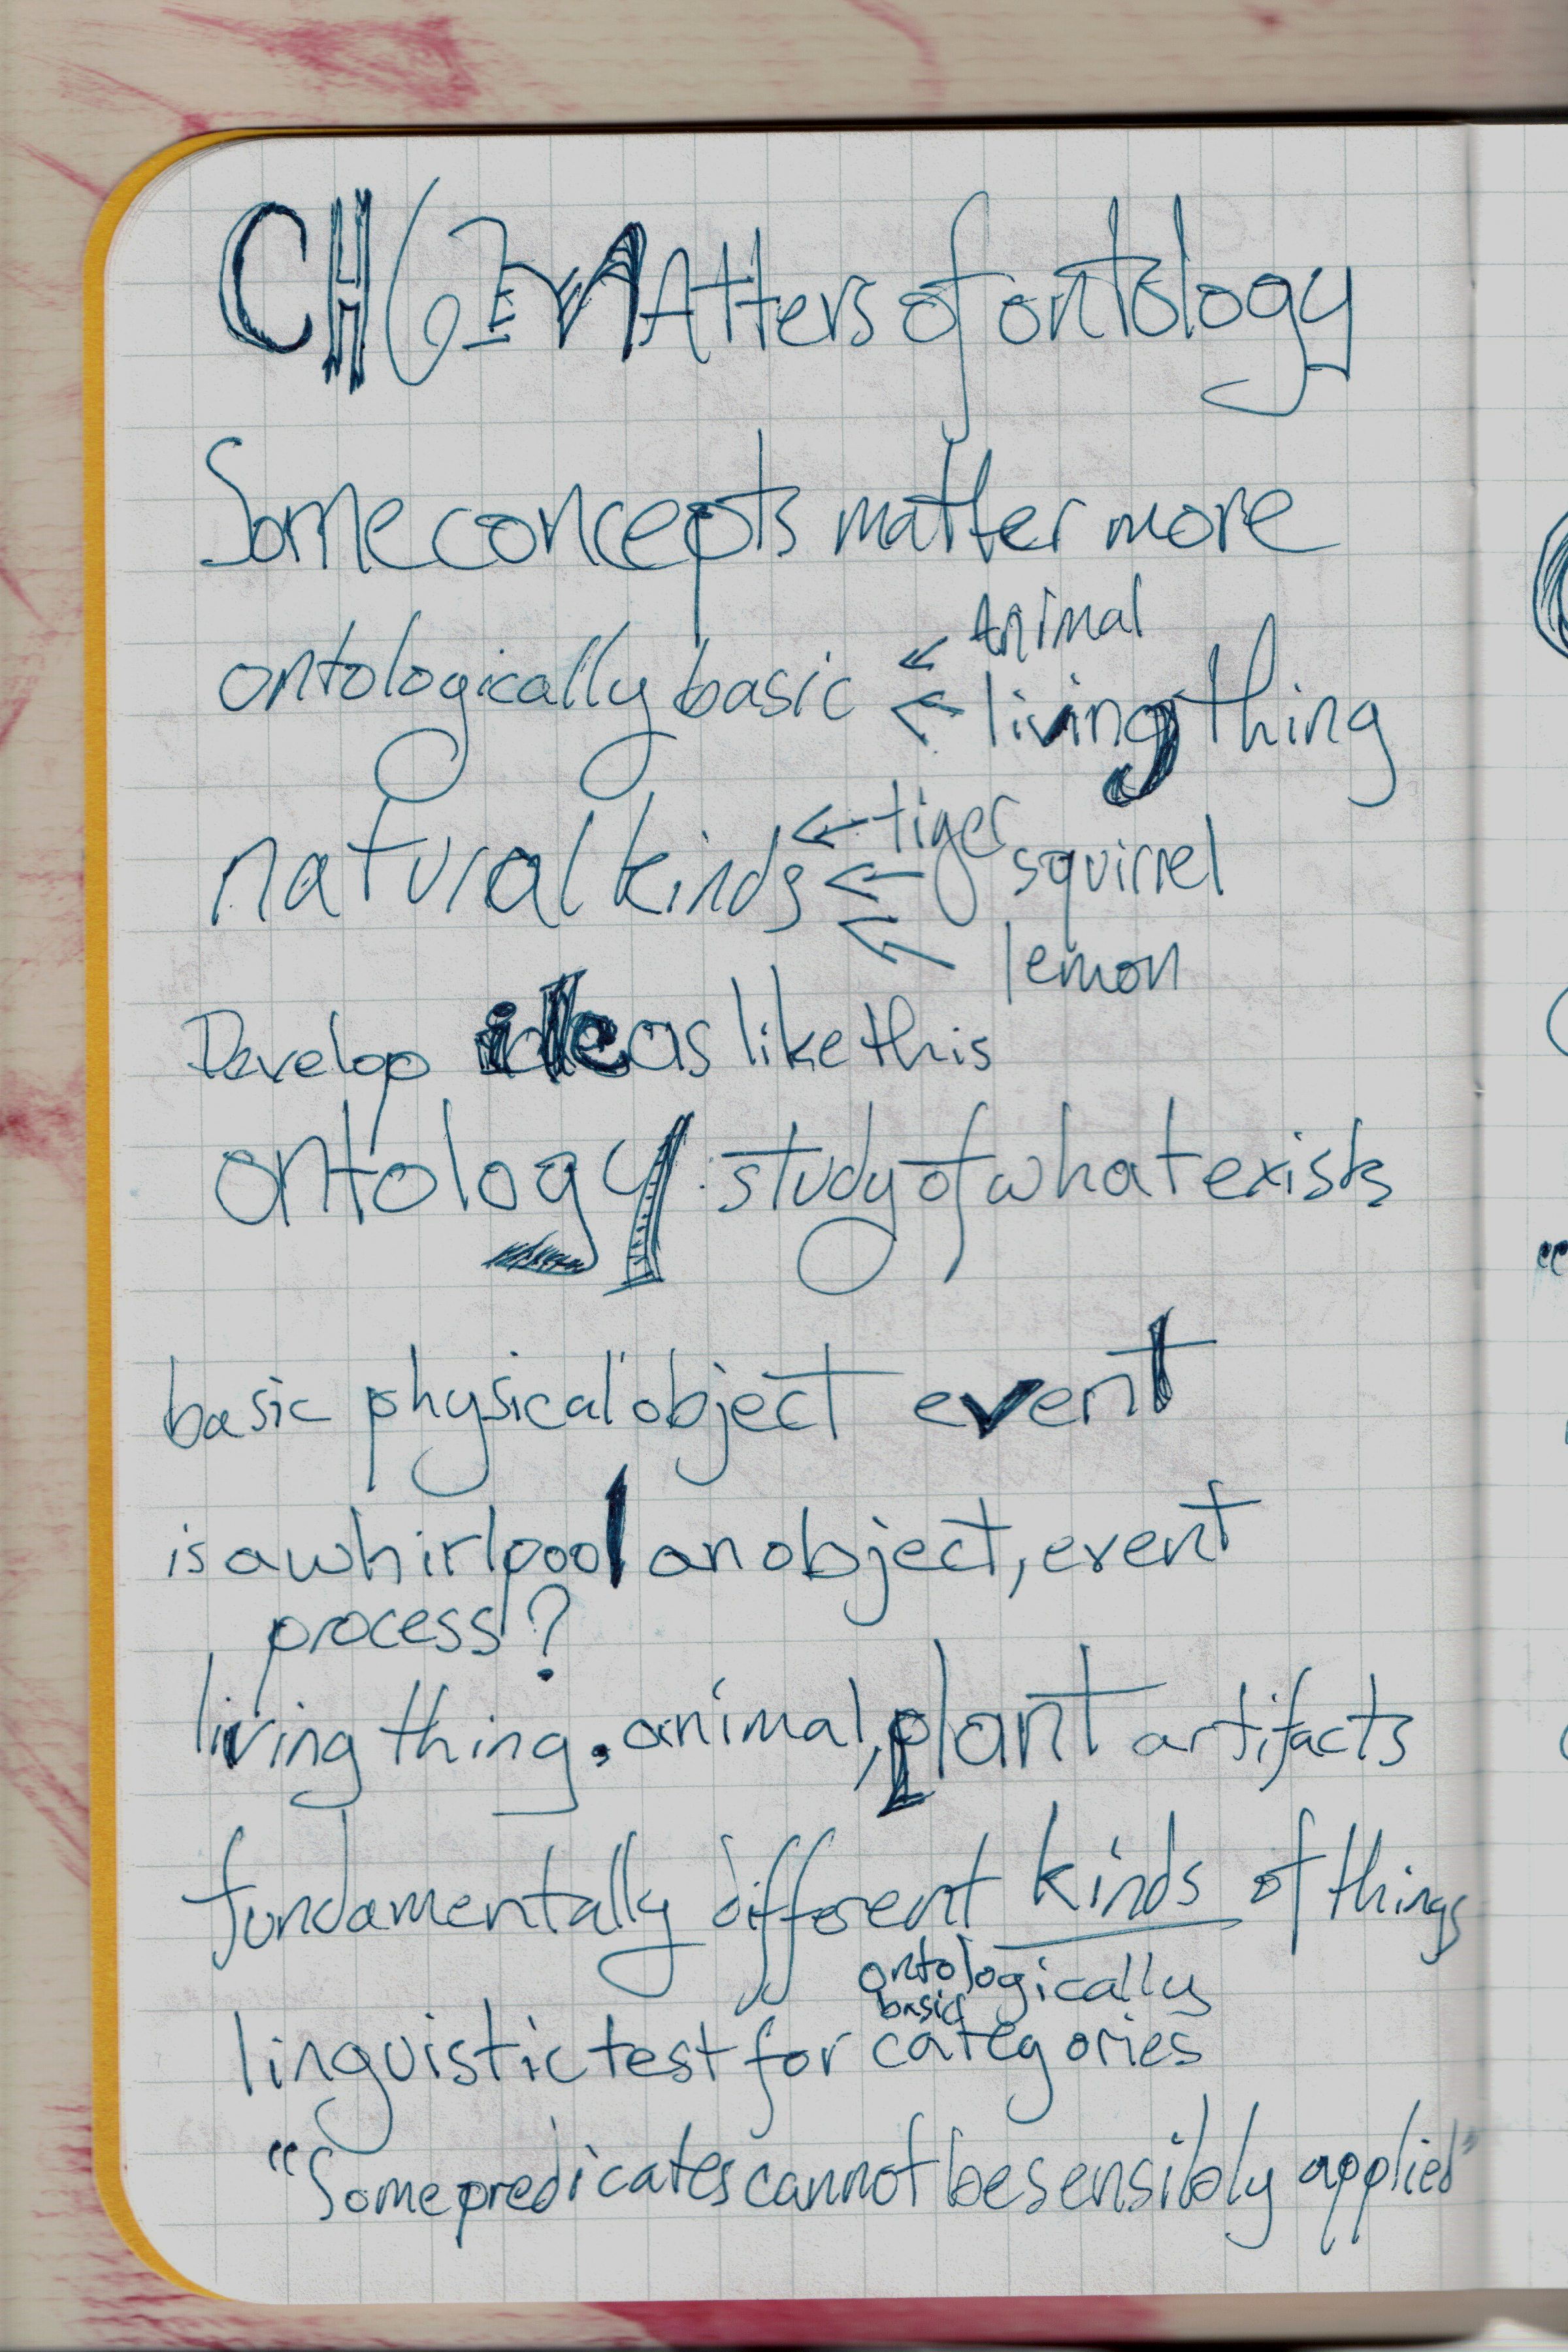 CH 6 Matters of ontology
Some concepts matter more
ontologically basic ← Animal
← living thing
natural kinds ← tiger
← squirrel
← lemon
Develop ideas like this
ontology: study of what exists
basic physical object event
is a whirlpool an object, event
process?
living thing. animal, plant artifacts
fundamentally different kinds of things
ontologically
basic
linguistic test for categories
"Some predicates cannot be sensibly applied"